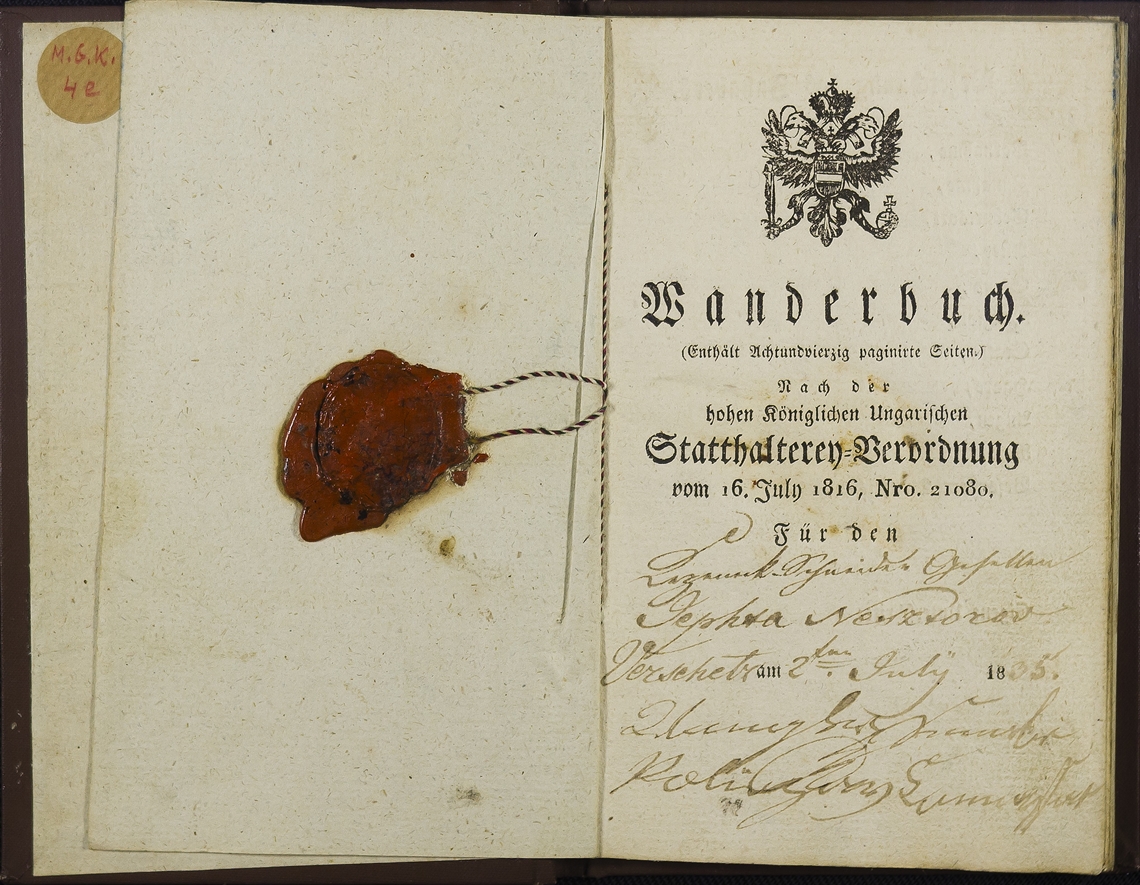 M.G.K.
4e
Wanderbuch.
(Enthält Achtundvierzig paginirte Seiten.)
Nach der
hohen Königlichen Ungarischen
Statthalterey=Verordnung
vom 16. July 1816, Nro. 21080.
Für den
Schneider Gesellen
Jephta
Verschetz am 2ten July 1835.